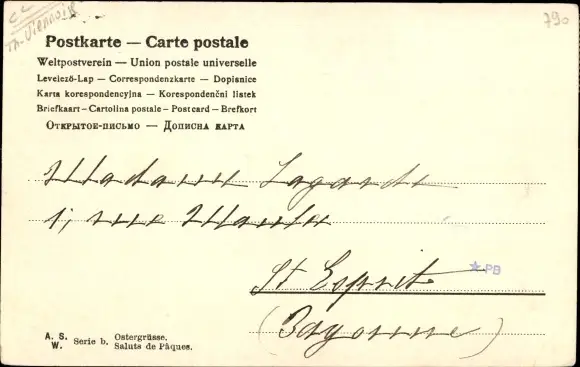 Th. Viennois
790
Postkarte — Carte postale
Weltpostverein — Union postale universelle
Levelező-Lap — Correspondenzkarte — Dopisnice
Karta korespondencyjna — Korespondenční listek
Briefkaart — Cartolina postale — Postcard — Brefkort
Открытое-письмо — Дописна карта
Madame Lagarde
1, rue Maubec
St Esprit
PB
(Bayonne)
A. S. W. Serie b. Ostergrüsse. Saluts de Pâques.